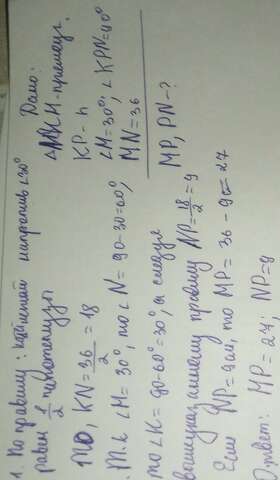 Дано:
△MKN - прямоуг.
KP - h
∠M = 30°; ∠KPN = 90°
MN = 36
MP, PN - ?
1. По правилу: катет напротив ∠30°
равен 1/2 гипотенузы
то, KN = 36/2 = 18
. Т.к ∠M = 30°, то ∠N = 90-30=60°,
то ∠K = 90-60°=30°, а следуя
вышеуказанному правилу NP = 18/2 = 9
Если NP = 9см, то MP = 36 - 9 = 27
Ответ: MP = 27; NP = 9